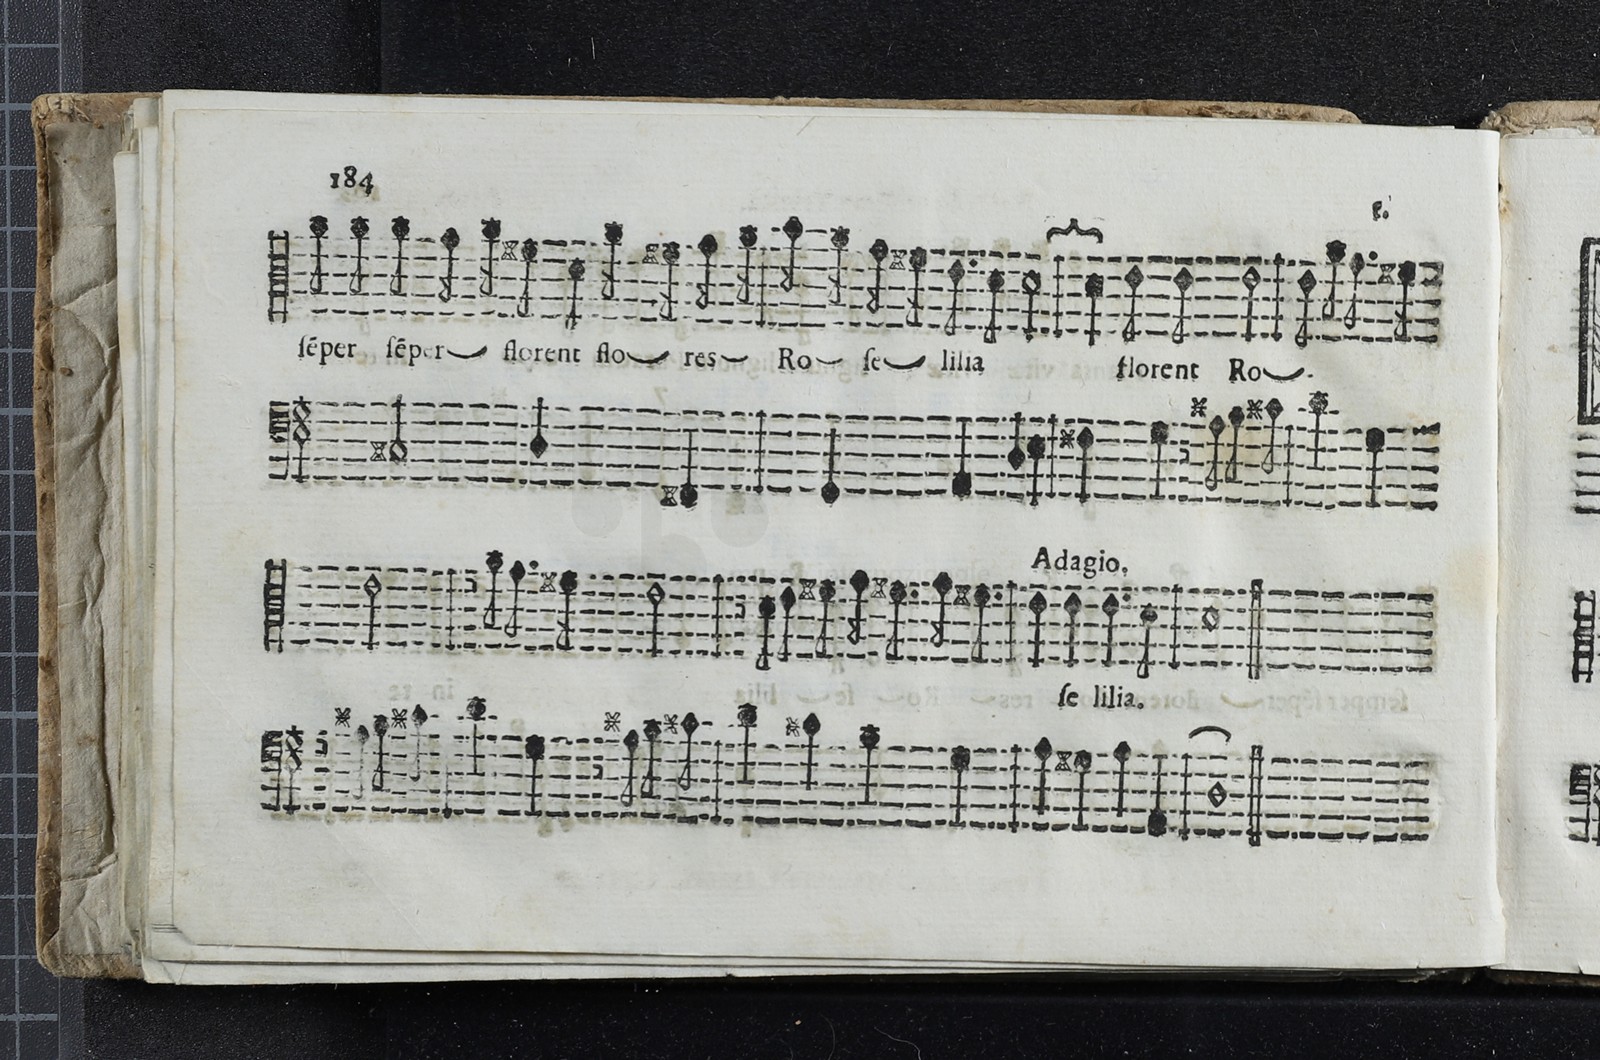 184
f.
ſēper ſēper florent flo res Ro ſe lilia florent Ro
Adagio.
ſe lilia.